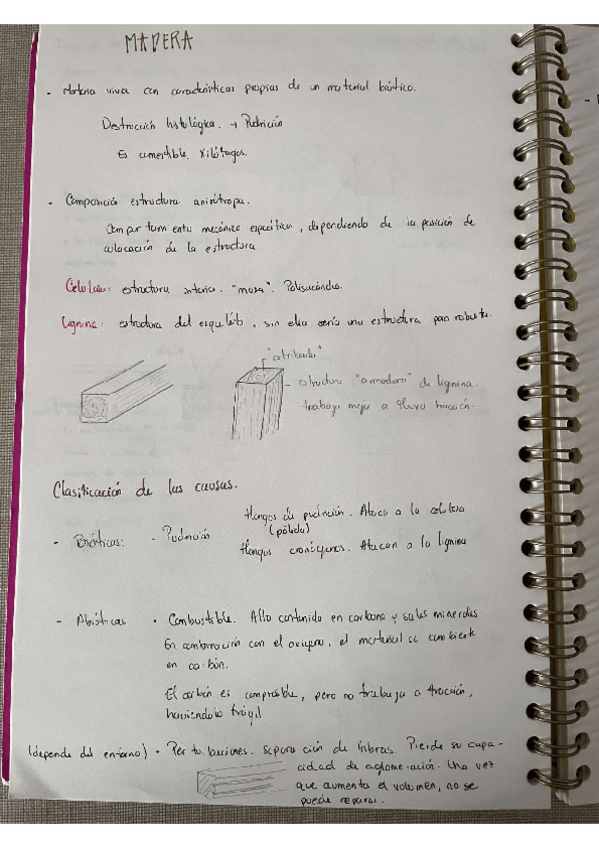 MADERA
- Materia viva con características propias de un material biótico.
Destrucción histológica. → Pudrición
Es comestible. Xilófagos.
- Composición estructura anisótropa.
Comportamiento mecánico específico, dependiendo de la posición de
colocación de la estructura
Celulosa: estructura interior. "masa". Polisacárido.
Lignina: estructura del esqueleto, sin ella sería una estructura poco robusta.
"estribado"
estructura "armadura" de lignina.
trabaja mejor a tracción.
Clasificación de las causas.
Hongos de pudrición. Ataca a la celulosa
(pálida)
- Bióticas: - Pudrición
Hongos cromógenos. Atacan a la lignina
- Abióticas • Combustible. Alto contenido en carbono y sales minerales
En combinación con el oxígeno, el material se convierte
en carbón.
El carbón es compresible, pero no trabaja a tracción,
haciéndolo frágil
(depende del entorno) • Perturbaciones. Separación de fibras. Pierde su capa-
cidad de aglomeración. Una vez
que aumenta el volumen, no se
puede reparar.